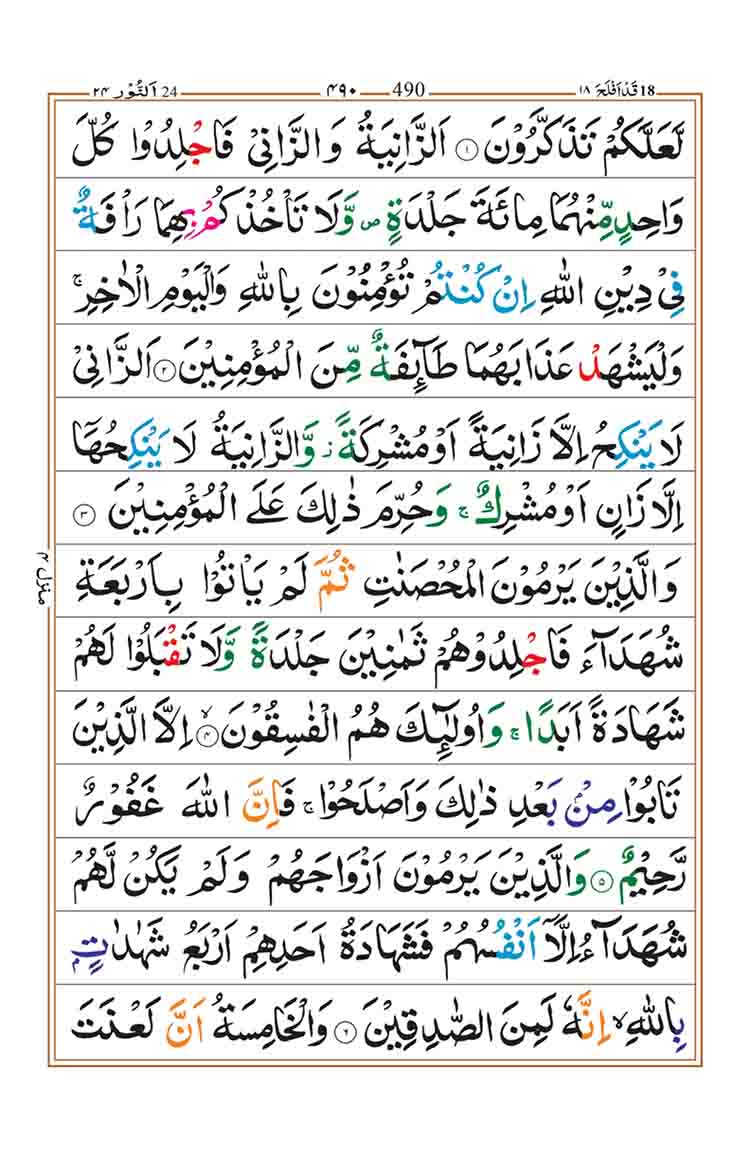 18 قَدْ اَفْلَحَ ١٨ 490 ۴۹۰ 24 اَلنُّوْر ۲۴
لَّعَلَّكُمْ تَذَكَّرُوْنَ ۱ اَلزَّانِيَةُ وَالزَّانِيْ فَاجْلِدُوْا كُلَّ
وَاحِدٍ مِّنْهُمَا مِائَةَ جَلْدَةٍ ۪ وَّلَا تَاْخُذْكُمْ بِهِمَا رَاْفَةٌ
فِيْ دِيْنِ اللّٰهِ اِنْ كُنْتُمْ تُؤْمِنُوْنَ بِاللّٰهِ وَالْيَوْمِ الْاٰخِرِ ۚ
وَلْيَشْهَدْ عَذَابَهُمَا طَآئِفَةٌ مِّنَ الْمُؤْمِنِيْنَ ۲ اَلزَّانِيْ
لَا يَنْكِحُ اِلَّا زَانِيَةً اَوْ مُشْرِكَةً ؗ وَّالزَّانِيَةُ لَا يَنْكِحُهَاۤ
اِلَّا زَانٍ اَوْ مُشْرِكٌ ۚ وَحُرِّمَ ذٰلِكَ عَلَى الْمُؤْمِنِيْنَ ۳
وَالَّذِيْنَ يَرْمُوْنَ الْمُحْصَنٰتِ ثُمَّ لَمْ يَاْتُوْا بِاَرْبَعَةِ
شُهَدَآءَ فَاجْلِدُوْهُمْ ثَمٰنِيْنَ جَلْدَةً وَّلَا تَقْبَلُوْا لَهُمْ
شَهَادَةً اَبَدًا ۚ وَاُولٰٓئِكَ هُمُ الْفٰسِقُوْنَ ۙ ۴ اِلَّا الَّذِيْنَ
تَابُوْا مِنْۢ بَعْدِ ذٰلِكَ وَاَصْلَحُوْا ۚ فَاِنَّ اللّٰهَ غَفُوْرٌ
رَّحِيْمٌ ۵ وَالَّذِيْنَ يَرْمُوْنَ اَزْوَاجَهُمْ وَلَمْ يَكُنْ لَّهُمْ
شُهَدَآءُ اِلَّاۤ اَنْفُسُهُمْ فَشَهَادَةُ اَحَدِهِمْ اَرْبَعُ شَهٰدٰتٍۭ
بِاللّٰهِ ۙ اِنَّهٗ لَمِنَ الصّٰدِقِيْنَ ۶ وَالْخَامِسَةُ اَنَّ لَعْنَتَ
منزل ۴